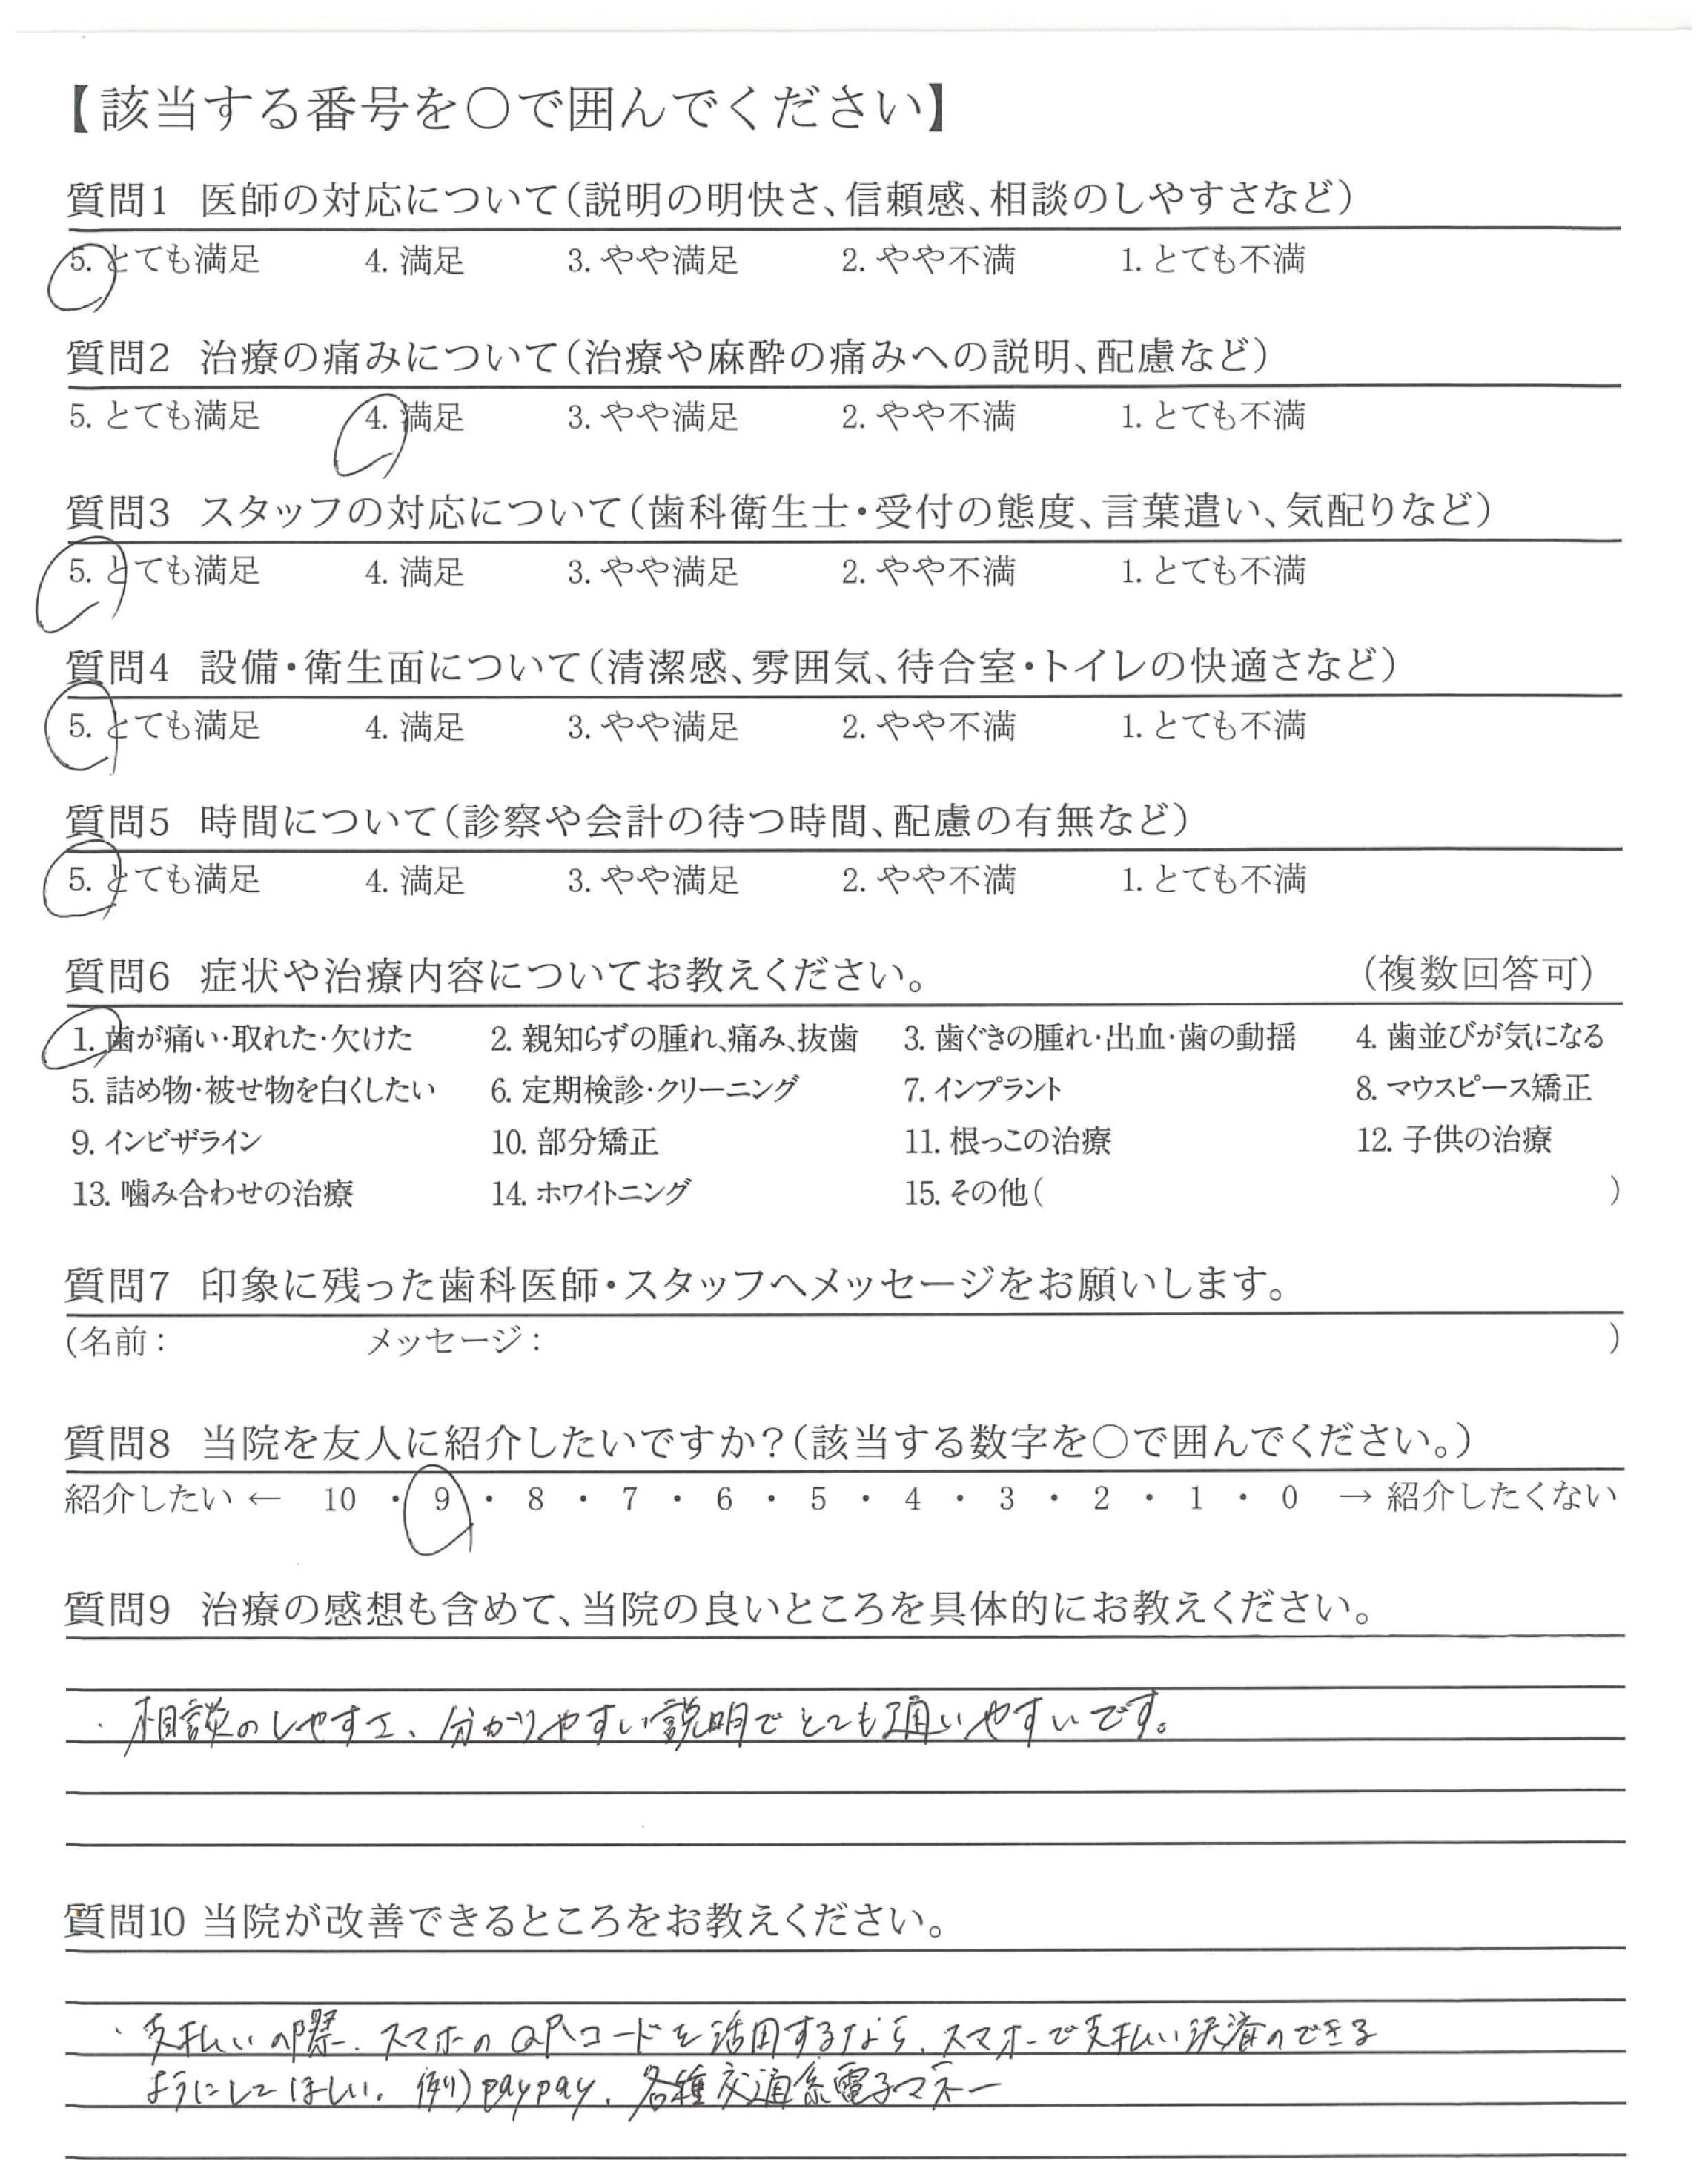 【該当する番号を○で囲んでください】
質問1 医師の対応について(説明の明快さ、信頼感、相談のしやすさなど)
5. とても満足 4. 満足 3. やや満足 2. やや不満 1. とても不満
質問2 治療の痛みについて(治療や麻酔の痛みへの説明、配慮など)
5. とても満足 4. 満足 3. やや満足 2. やや不満 1. とても不満
質問3 スタッフの対応について(歯科衛生士・受付の態度、言葉遣い、気配りなど)
5. とても満足 4. 満足 3. やや満足 2. やや不満 1. とても不満
質問4 設備・衛生面について(清潔感、雰囲気、待合室・トイレの快適さなど)
5. とても満足 4. 満足 3. やや満足 2. やや不満 1. とても不満
質問5 時間について(診察や会計の待つ時間、配慮の有無など)
5. とても満足 4. 満足 3. やや満足 2. やや不満 1. とても不満
質問6 症状や治療内容についてお教えください。 (複数回答可)
1. 歯が痛い・取れた・欠けた 2. 親知らずの腫れ、痛み、抜歯 3. 歯ぐきの腫れ・出血・歯の動揺 4. 歯並びが気になる
5. 詰め物・被せ物を白くしたい 6. 定期検診・クリーニング 7. インプラント 8. マウスピース矯正
9. インビザライン 10. 部分矯正 11. 根っこの治療 12. 子供の治療
13. 噛み合わせの治療 14. ホワイトニング 15. その他( )
質問7 印象に残った歯科医師・スタッフへメッセージをお願いします。
(名前: メッセージ: )
質問8 当院を友人に紹介したいですか?(該当する数字を○で囲んでください。)
紹介したい ← 10 ・ 9 ・ 8 ・ 7 ・ 6 ・ 5 ・ 4 ・ 3 ・ 2 ・ 1 ・ 0 → 紹介したくない
質問9 治療の感想も含めて、当院の良いところを具体的にお教えください。
・相談のしやすさ、分かりやすい説明でとても通いやすいです。
質問10 当院が改善できるところをお教えください。
・支払いの際、スマホのQRコードを活用するなら、スマホで支払い決済のできる
ようにしてほしい。例)paypay、各種交通系電子マネー